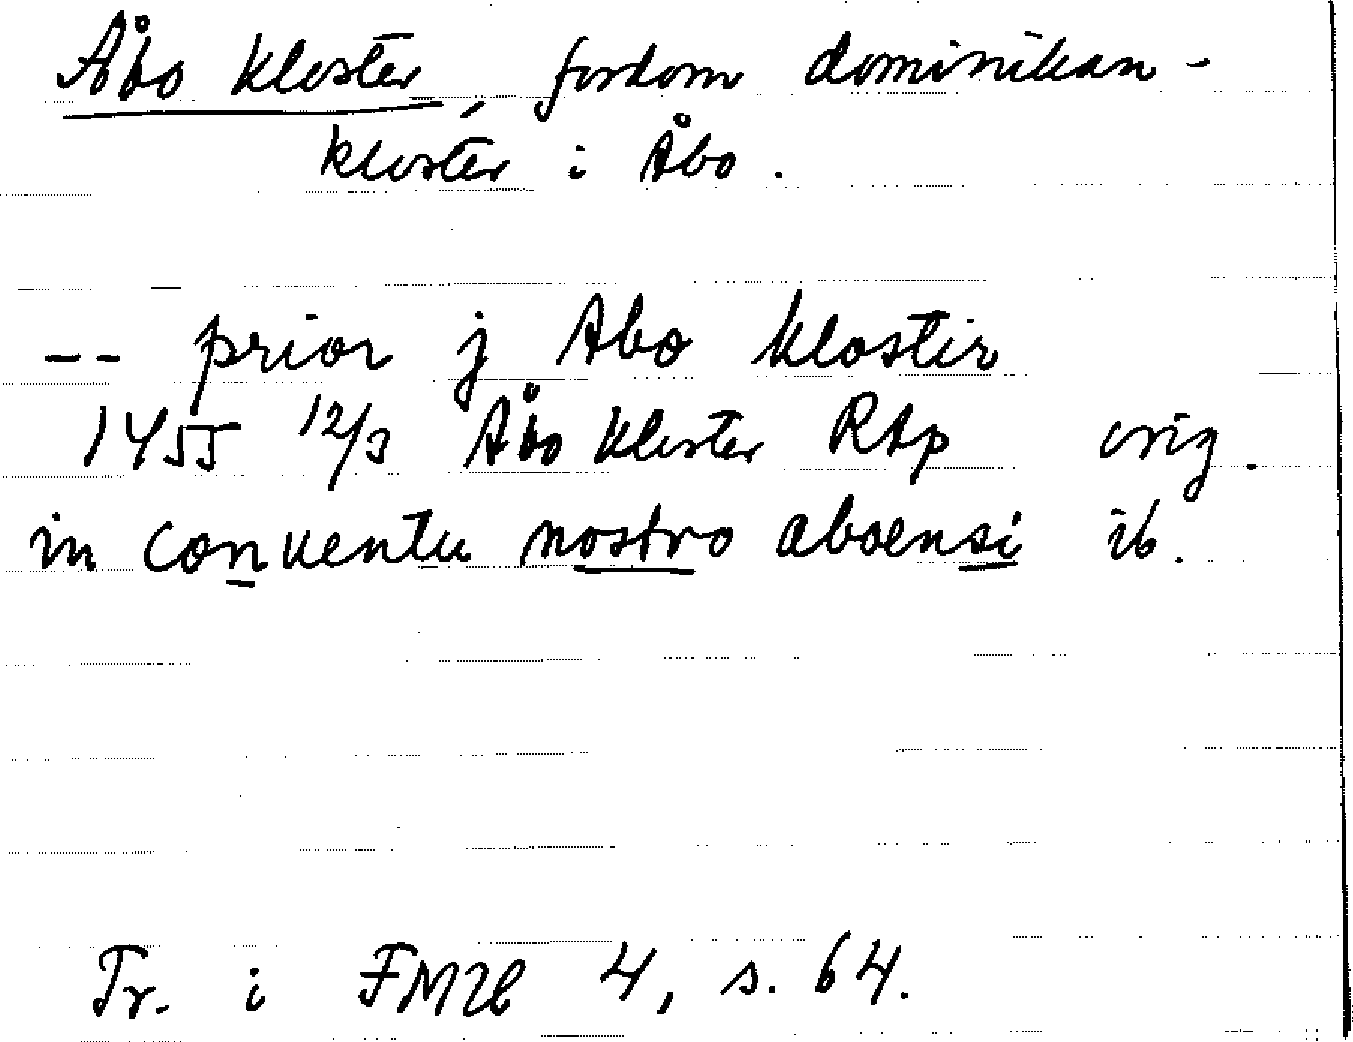 Åbo kloster, fordom dominikan-
kloster i Åbo.
-- prior j Abo klostir
1455 12/3 Åbo kloster RAp orig.
in conuentu nostro aboensi ib.
Tr. i FMU 4, s. 64.